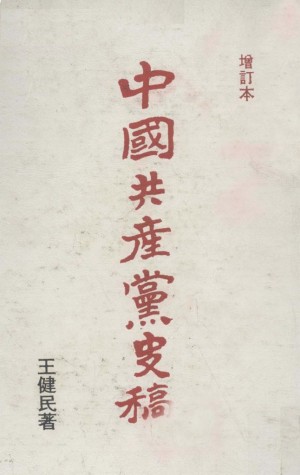 增訂本
中國共產黨史稿
王健民著